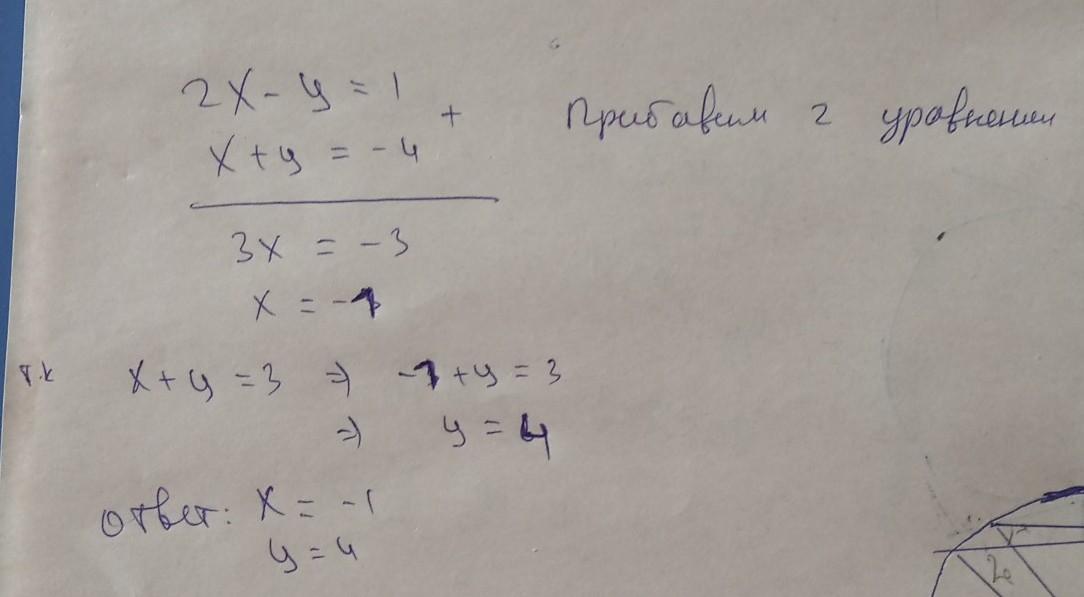 2x - y = 1
+ Прибавим 2 уравнении
x + y = -4
3x = -3
x = -1
т.к x + y = 3 ⇒ -1 + y = 3
⇒ y = 4
Ответ: x = -1
y = 4